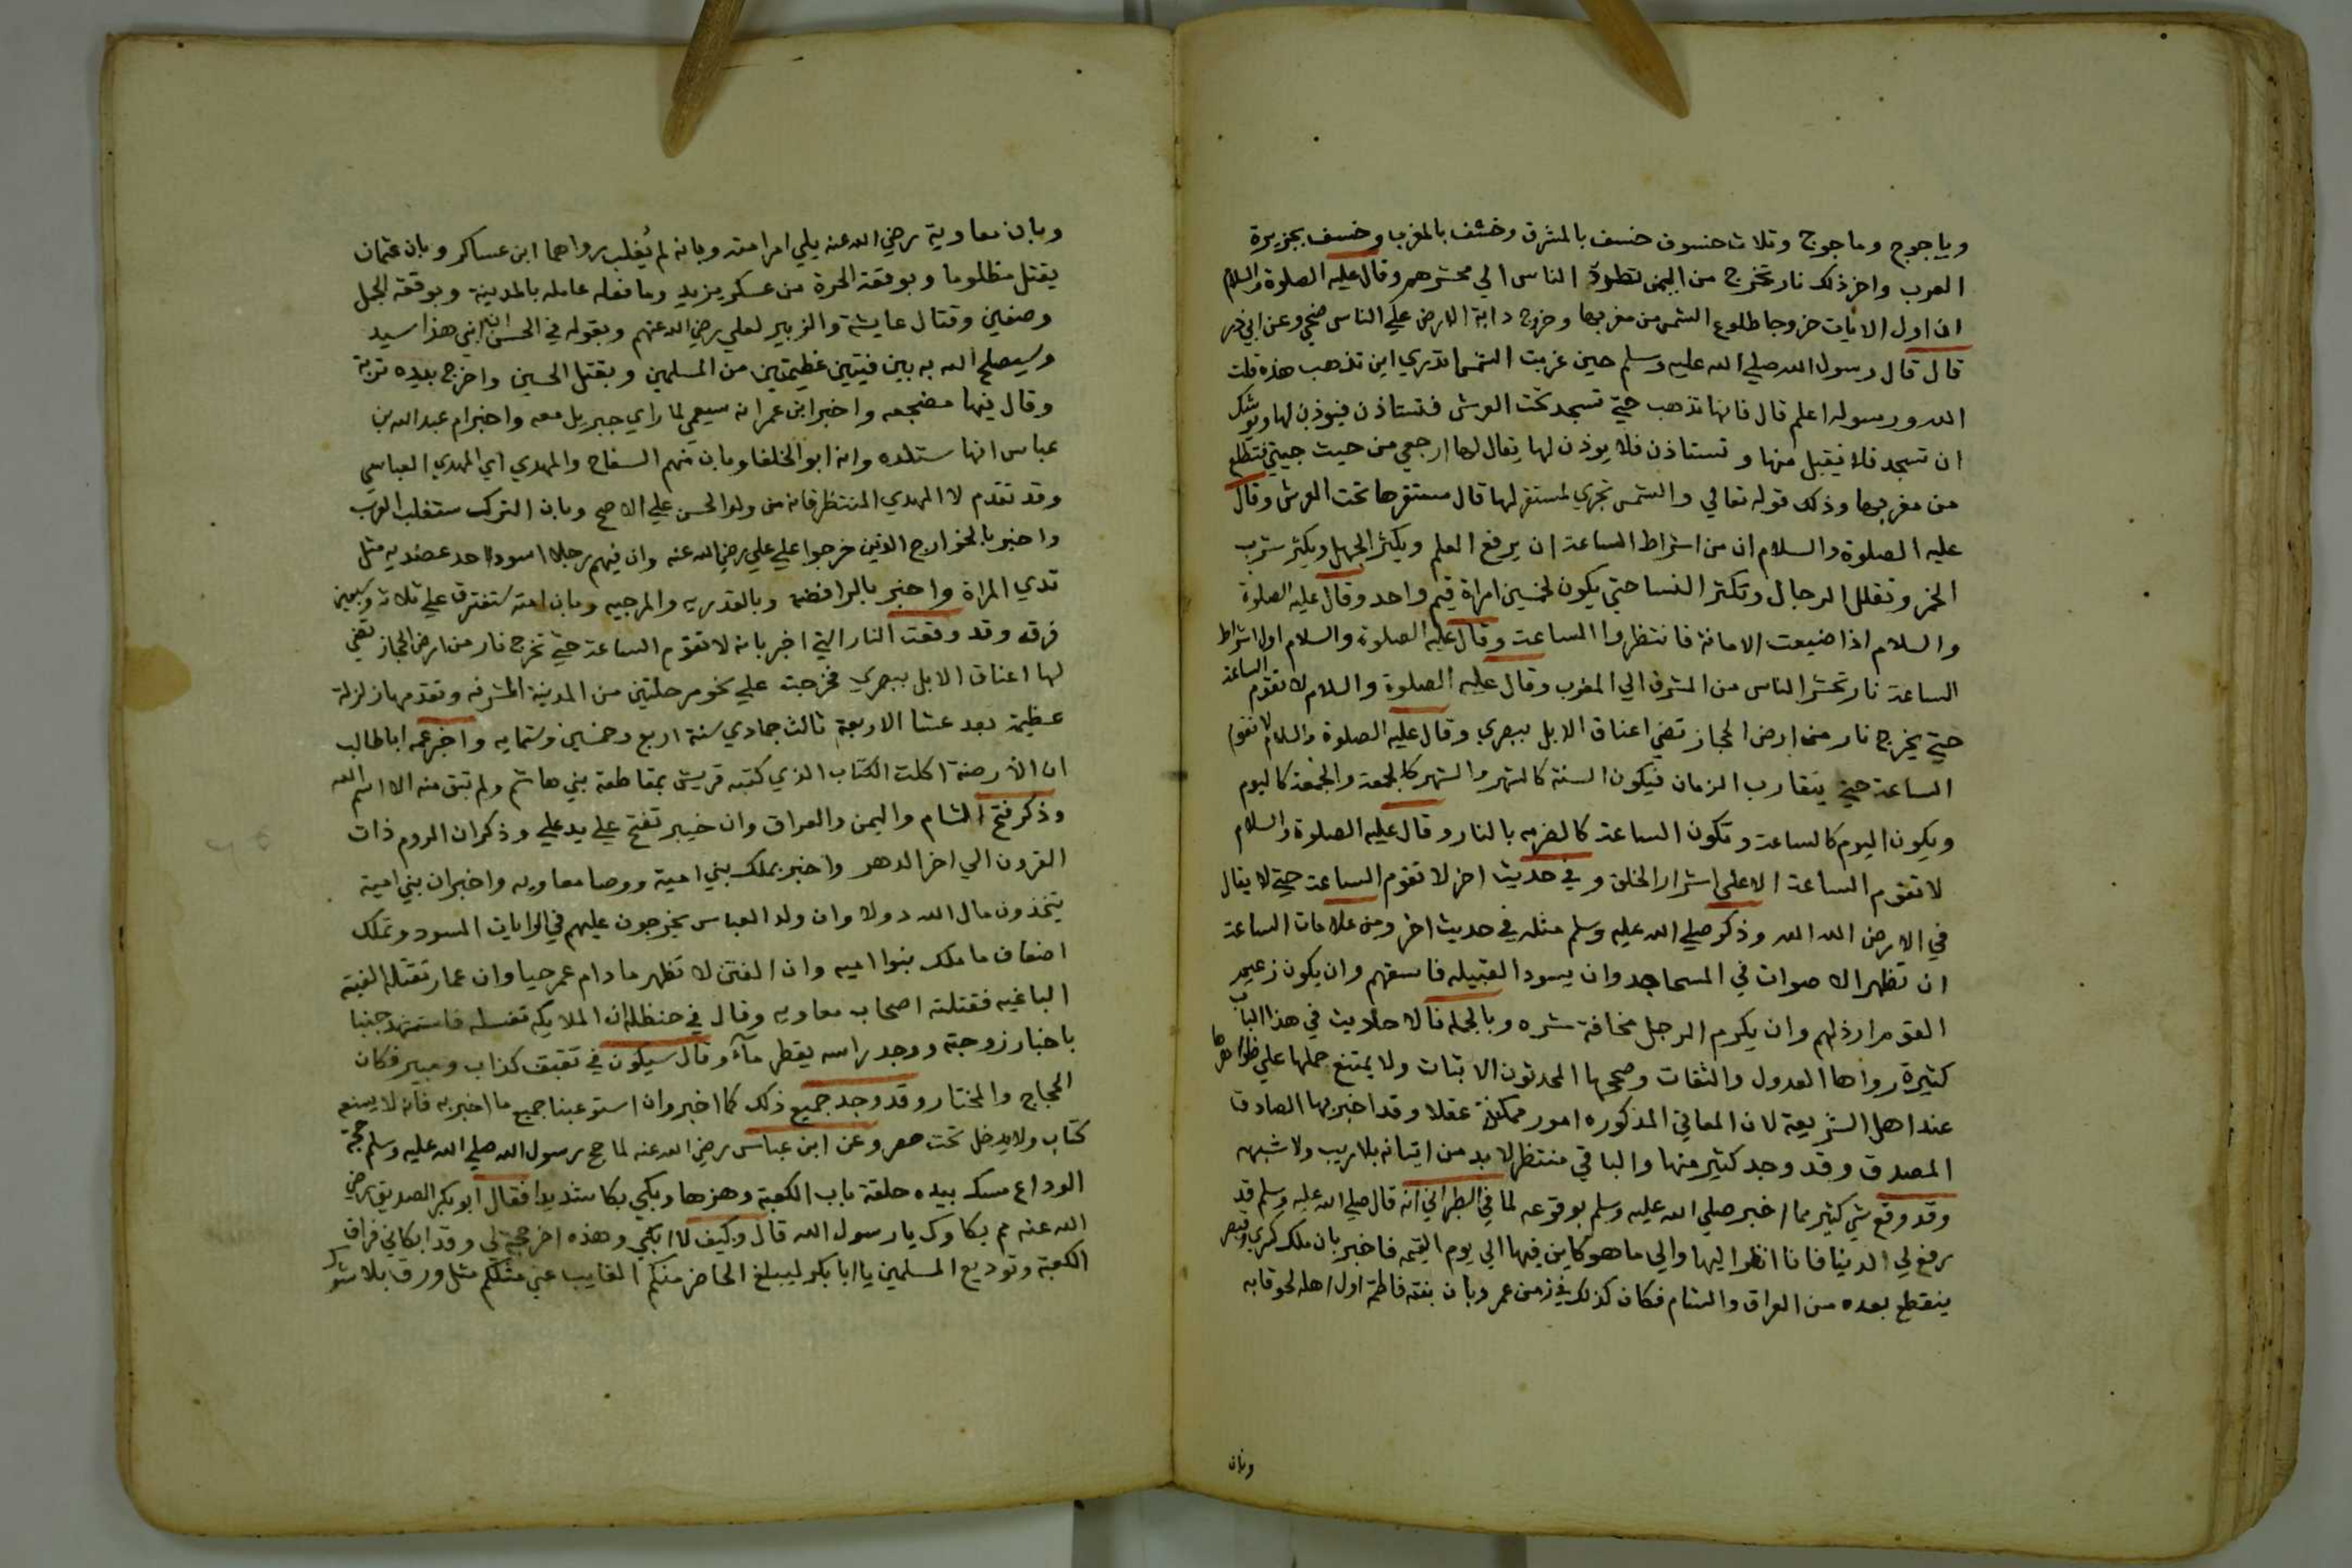 وياجوج وماجوج وثلاث خسوف خسف بالمشرق وخسف بالمغرب وخسف بجزيرة
العرب واخر ذلك نار تخرج من اليمن تطرد الناس الي محشرهم وقال عليه الصلوة والسلام
ان اول الايات خروجا طلوع الشمس من مغربها وخروج دابة الارض علي الناس ضحي وعن ابي ذر
قال قال رسول الله صلي الله عليه وسلم حين غربت الشمس اتدري اين تذهب هذه قلت
الله ورسوله اعلم قال فانها تذهب حتي تسجد تحت العرش فتستاذن فيوذن لها ويوشك
ان تسجد فلا يقبل منها وتستاذن فلا يوذن لها يقال لها ارجعي من حيث جيتي فتطلع
من مغربها وذلك قوله تعالي والشمس تجري لمستقر لها قال مستقرها تحت العرش وقال
عليه الصلوة والسلام ان من اشراط الساعة ان يرفع العلم ويكثر الجهل ويكثر شرب
الخمر وتقلل الرجال وتكثر النسا حتي يكون لخمسين امراة قيم واحد وقال عليه الصلوة
والسلام اذا ضيعت الامانة فانتظروا الساعة وقال عليه الصلوة والسلام اول اشراط
الساعة نار تحشر الناس من المشرق الي المغرب وقال عليه الصلوة والسلام لا تقوم الساعة
حتي يخرج نار من ارض الحجاز تضي اعناق الابل ببصري وقال عليه الصلوة والسلام لا تقوم
الساعة حتي يتقارب الزمان فيكون السنة كالشهر والشهر كالجمعة والجمعة كاليوم
ويكون اليوم كالساعة وتكون الساعة كالضرمه بالنار وقال عليه الصلوة والسلام
لا تقوم الساعة الا علي اشرار الخلق وفي حديث اخر لا تقوم الساعة حتي لا يقال
في الارض الله الله وذكر صلي الله عليه وسلم مثله في حديث اخر ومن علامات الساعة
ان تظهر الاصوات في المساجد وان يسود القبيله فاسقهم وان يكون زعيم
القوم ارذلهم وان يكرم الرجل مخافة شره وبالجمله فالاحاديث في هذا الباب
كثيرة رواها العدول والثقات وصححها المحدثون الاثبات ولا يمتنع حملها علي ظواهرها
عند اهل الشريعة لان المعاني المذكوره امور ممكنة عقلا وقد اخبر بها الصادق
المصدق وقد وجد كثير منها والباقي منتظر لابد من اتيانه بلا ريب ولا شبهه
وقد وقع شي كثير مما اخبر صلي الله عليه وسلم بوقوعه لما في الطبراني انه قال صلي الله عليه وسلم قد
رفع لي الدنيا فانا انظر اليها والي ما هو كاين فيها الي يوم القيمه فاخبر بان ملك كسري وقيصر
ينقطع بعده من العراق والشام فكان كذلك في زمن عمر وبان بنته فاطمة اول اهله لحوقا به
وبان
وبان معاوية رضي الله عنه يلي امر امته وبانه لم يُغلب رواهما ابن عساكر وبان عثمان
يقتل مظلوما وبوقعة الحرة من عسكر يزيد وما فعله عامله بالمدينة وبوقعة الجمل
وصفين وقتال عايشة والزبير لعلي رضي الله عنهم وبقوله في الحسن ان ابني هذا سيد
وسيصلح الله به بين فيتين عظيمتين من المسلمين وبقتل الحسين واخرج بيده تربة
وقال فيها مضجعه واخبر ابن عمر انه سيعمي لما راي جبريل معه واخبر ام عبد الله بن
عباس انها ستلده وانه ابو الخلفا وبان منهم السفاح والمهدي اي المهدي العباسي
وقد تقدم لا المهدي المنتظر فانه من ولد الحسن علي الاصح وبان الترك ستغلب العرب
واخبر بالخوارج الذين خرجوا علي علي رضي الله عنه وان فيهم رجلا اسود احد عضديه مثل
ثدي المراة واخبر بالرافضه وبالقدريه والمرجيه وبان امته ستفترق علي ثلاث وسبعين
فرقه وقد وقعت النار التي اخبر بانه لا تقوم الساعة حتي تخرج نار من ارض الحجاز تضي
لها اعناق الابل ببصري فخرجت علي نحو مرحلتين من المدينة المشرفه وتقدمها زلزلة
عظيمة بعد عشا الاربعة ثالث جمادي سنة اربع وخمسين وستمايه واخبر عمه ابا طالب
ان الأرضة اكلت الكتاب الذي كتبه قريش بمقاطعة بني هاشم ولم تبق منه الا اسم الله
وذكر فتح الشام واليمن والعراق وان خيبر تفتح علي يد علي وذكر ان الروم ذات
القرون الي اخر الدهر واخبر بملك بني امية ووصا معاويه واخبر ان بني امية
يتخذون مال الله دولا وان ولد العباس يخرجون عليهم في الرايات السود وتملك
اضعاف ما ملك بنوا اميه وان الفتن لا تظهر ما دام عمر حيا وان عمار تقتله الفية
الباغيه فقتلته اصحاب معاويه وقال في حنظله ان الملايكه تغسله فاستشهد جنبا
باخبار زوجته ووجد راسه يقطر مآءً وقال سيكون في ثقيف كذاب ومبير فكان
الحجاج والمختار وقد وجد جميع ذلك كما اخبر وان استوعبنا جميع ما اخبر به فانه لا يسعه
كتاب ولا يدخل تحت حصر وعن ابن عباس رضي الله عنه لما حج رسول الله صلي الله عليه وسلم حجة
الوداع مسك بيده حلقة باب الكعبة وهزها وبكي بكا شديدا فقال ابو بكر الصديق رضي
الله عنه مم بكاوك يا رسول الله قال وكيف لا ابكي وهذه اخر حجة لي وقد ابكاني فراق
الكعبة وتوديع المسلمين يا ابا بكر ليبلغ الحاضر منكم الغايب عني مثلكم مثل ورق بلا شوك